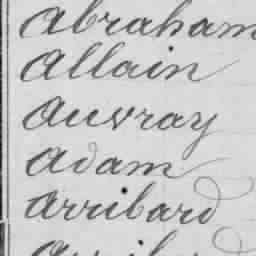 Abraham
Allain
Auvray
Adam
Arribard